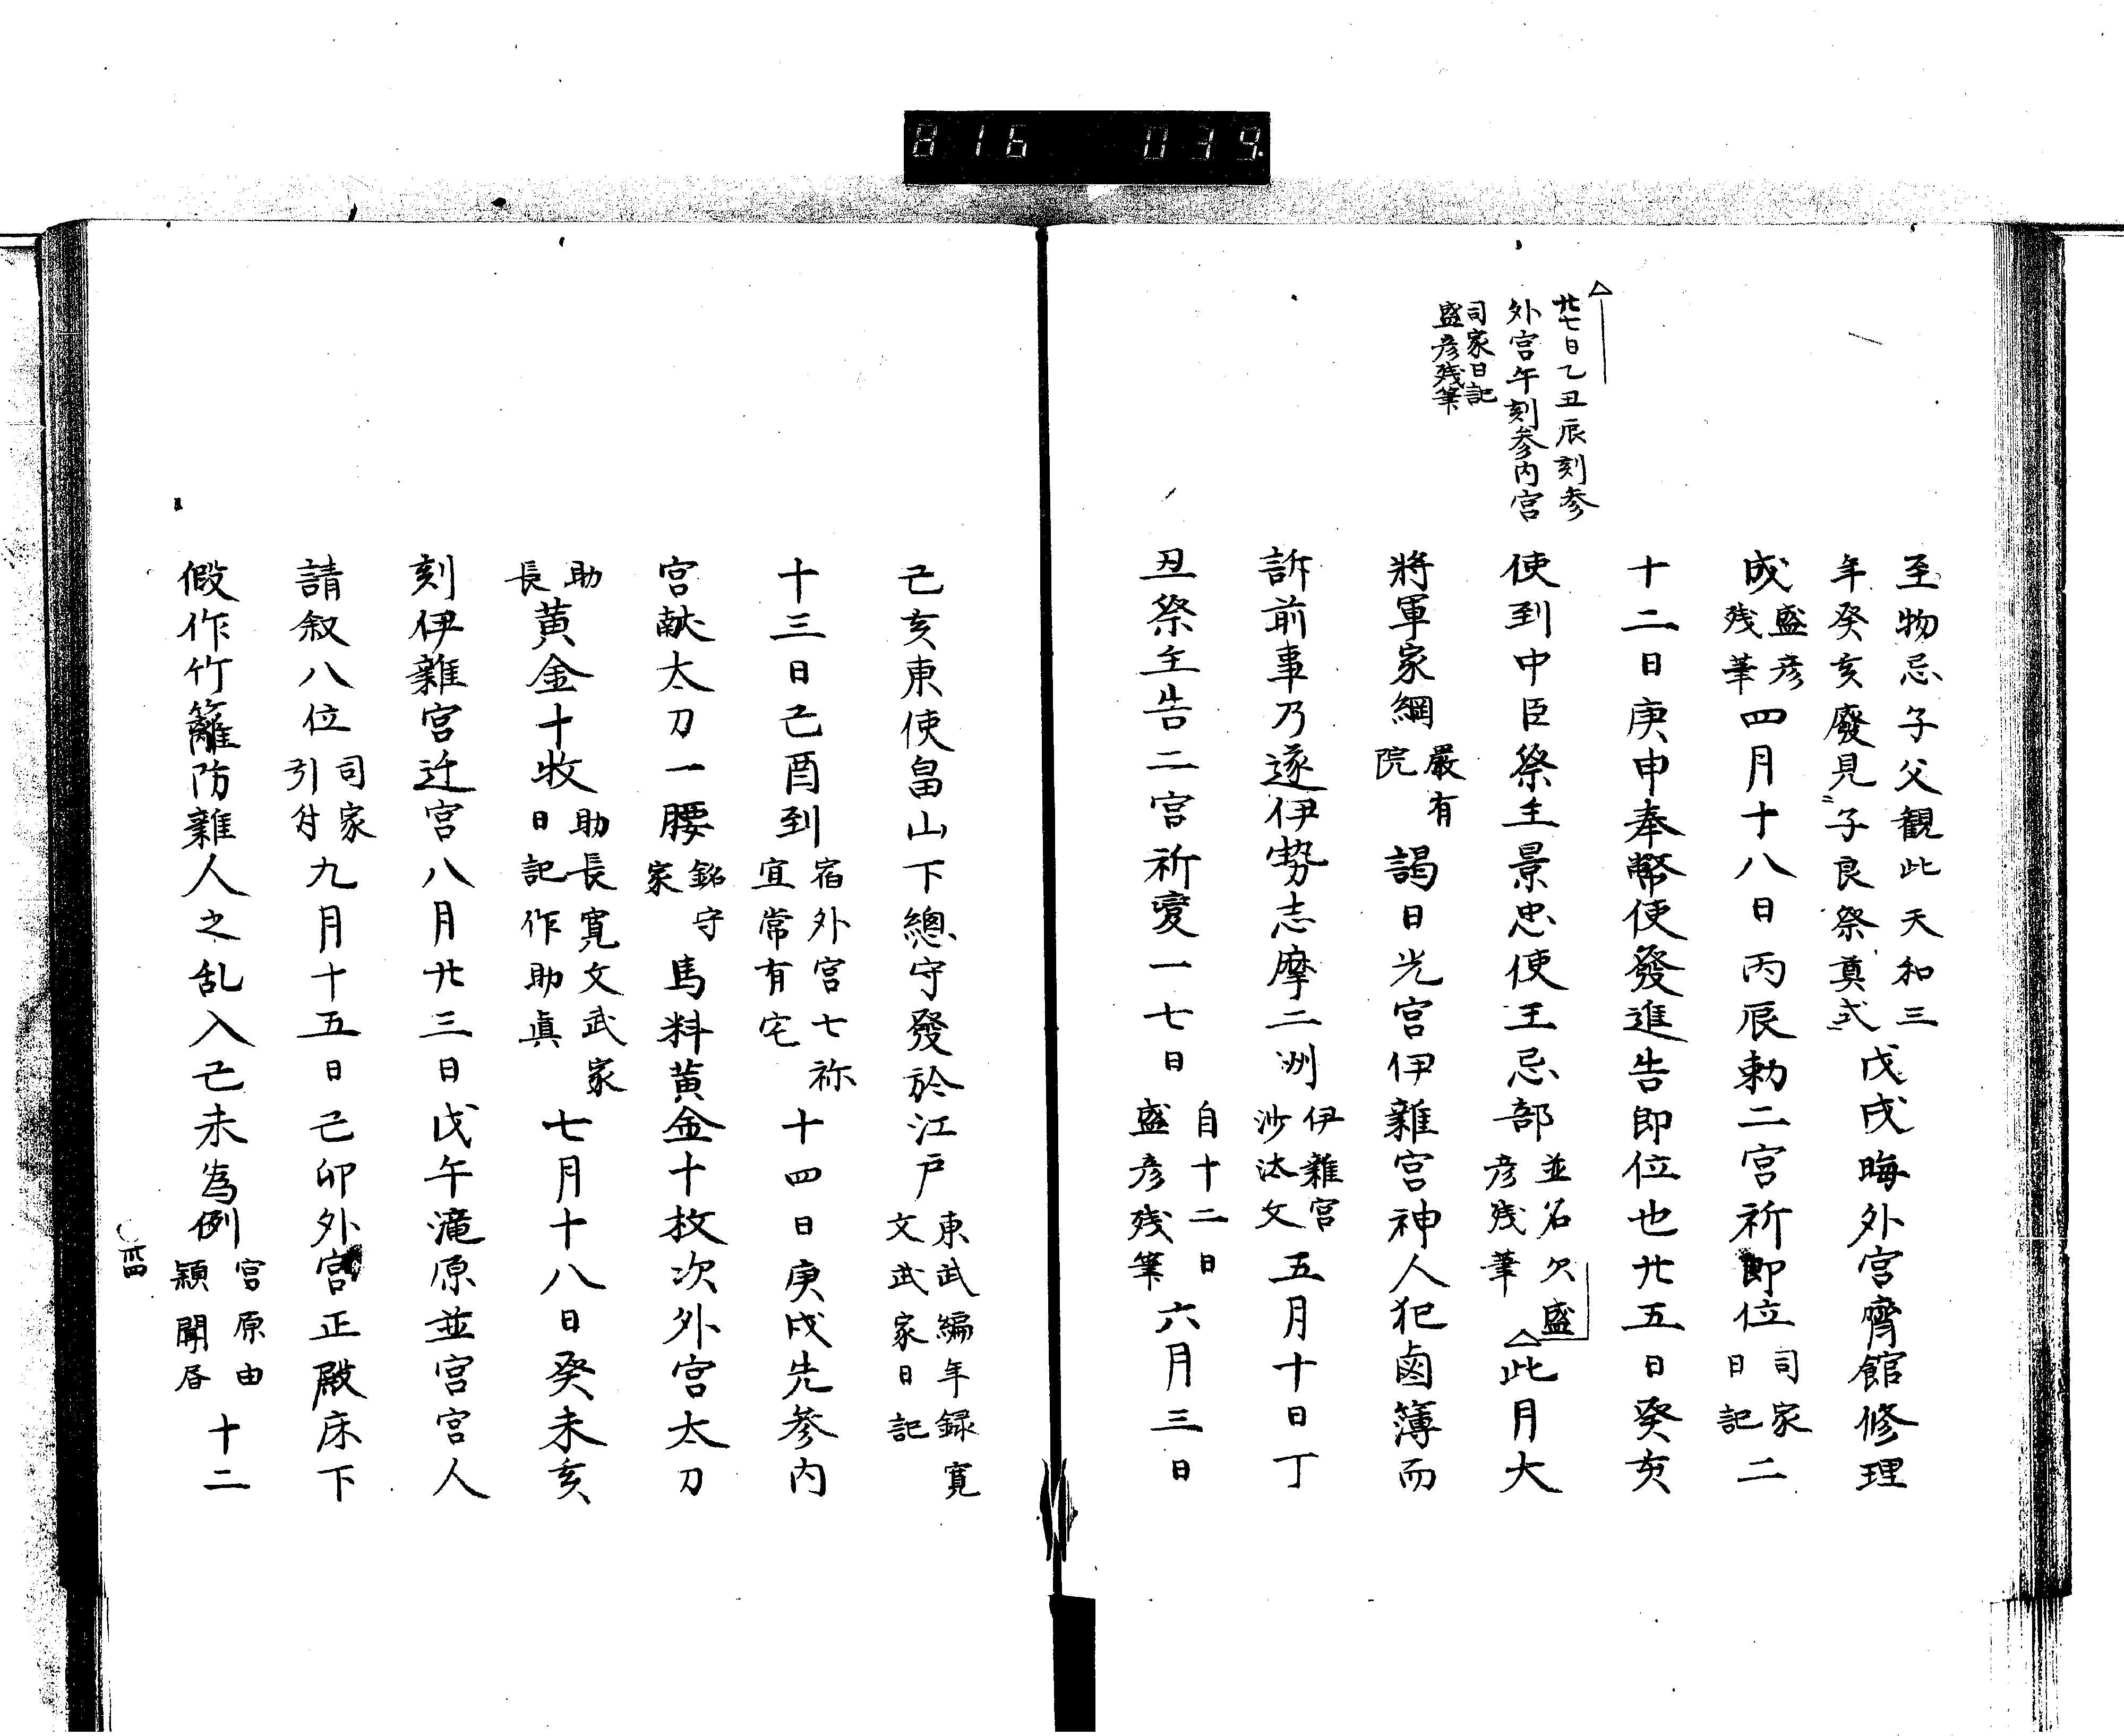 816 039.
廿七日乙丑辰刻参
外宮午刻参内宮
司家日記
盛彦残筆
至物忌子父観此天和三
年癸亥廢見子良祭奠式
戊戌晦外宮齊館修理
成
盛彦
残筆
四月十八日丙辰勅二宮祈即位
司家
日記
二
十二日庚申奉幣使發進告即位也廿五日癸亥
使到中臣祭主景忠使王忌部
並名欠盛
彦残筆
△此月大
將軍家綱
嚴有
院
謁日光宮伊雜宮神人犯鹵簿而
訴前事乃逐伊勢志摩二洲
伊雜宮
沙汰文
五月十日丁
丑祭主告二宮祈愛一七日
自十二日
盛彦残筆
六月三日
己亥東使畠山下總守發於江戸
東武編年録寛
文武家日記
十三日己酉到
宿外宮七祢
宜常有宅
十四日庚戌先參内
宮献太刀一腰
銘守
家
馬料黄金十枚次外宮太刀
助
長
黄金十牧
助長寛文武家
日記作助眞
七月十八日癸未亥
刻伊雜宮迁宮八月廿三日戊午滝原並宮宮人
請叙八位
司家
引付
九月十五日己卯外宮正殿床下
假作竹籬防雜人之乱入己未為例
宮原由
頴聞昏
十二
四